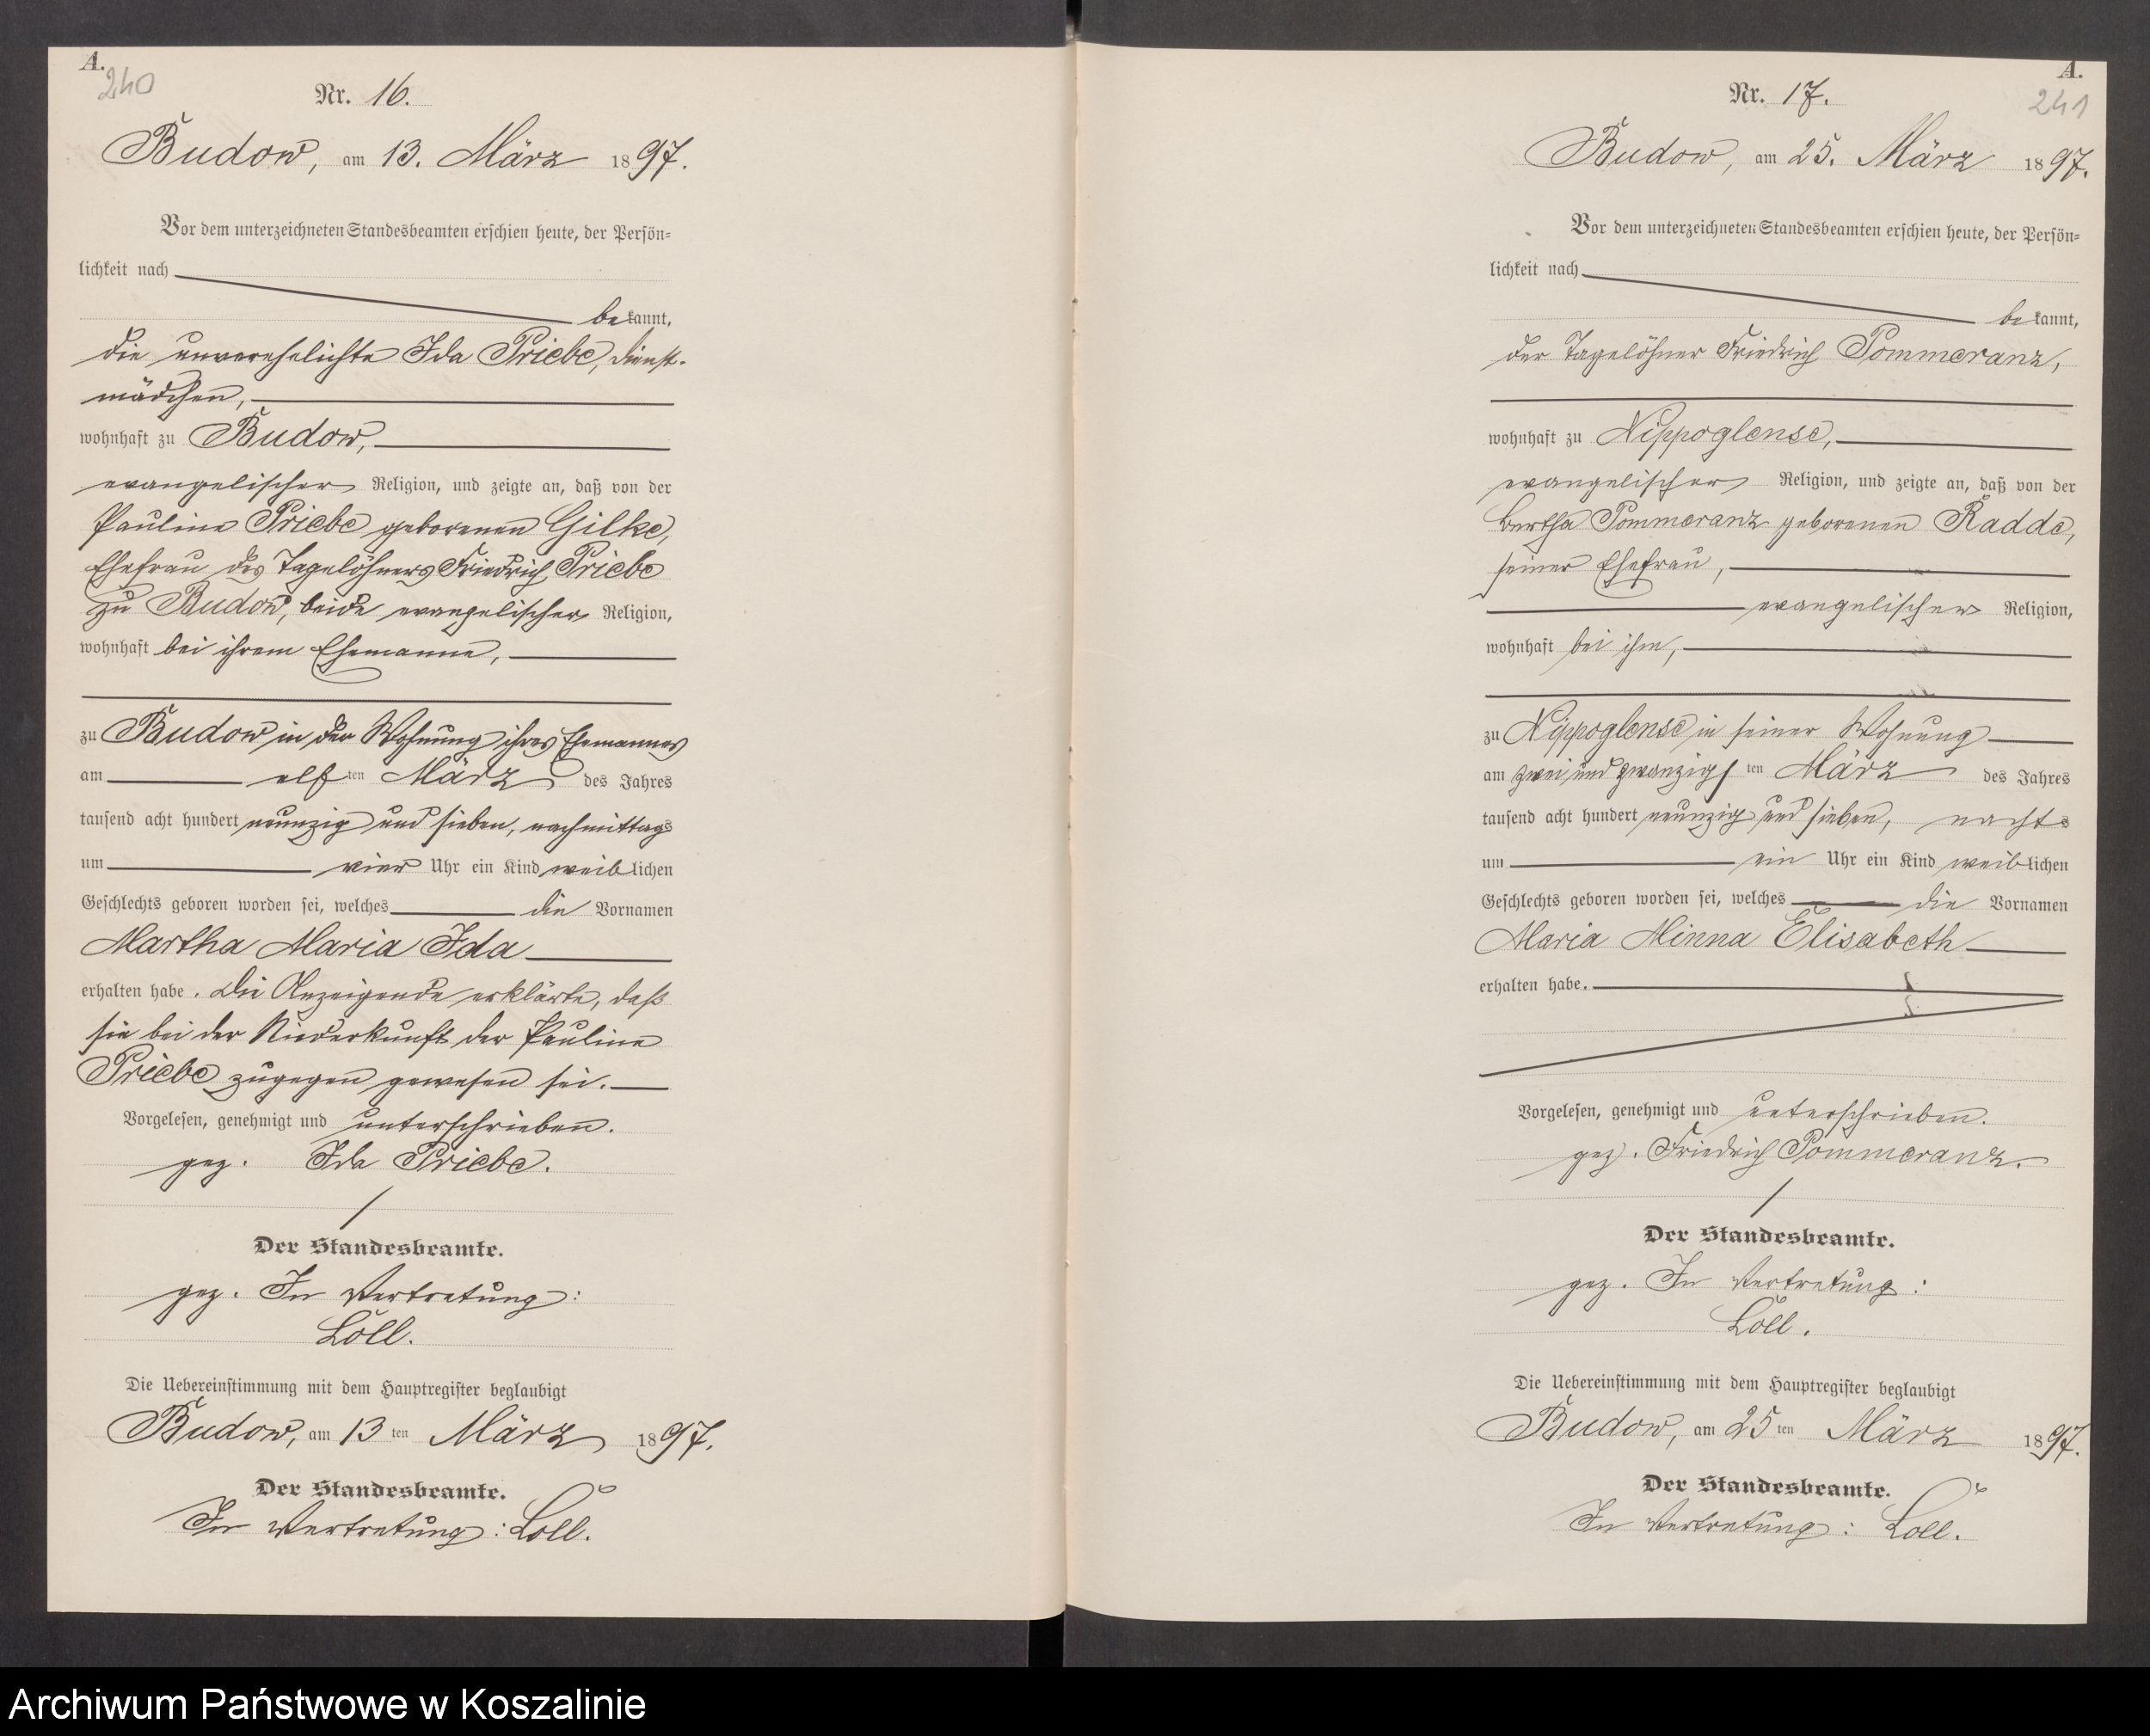 A.
240
Nr. 16.
Budow, am 13. März 1897.
Vor dem unterzeichneten Standesbeamten erschien heute, der Persön-
lichkeit nach
bekannt,
die unverehelichte Ida Priebe, Dienst-
mädchen,
wohnhaft zu Budow,
evangelischer Religion, und zeigte an, daß von der
Pauline Priebe geborenen Gilke,
Ehefrau des Tagelöhners Friedrich Priebe
zu Budow, beide evangelischer Religion,
wohnhaft bei ihrem Ehemanne,
zu Budow in der Wohnung ihres Ehemannes
am elften März des Jahres
tausend acht hundert neunzig und sieben, nachmittags
um vier Uhr ein Kind weiblichen
Geschlechts geboren worden sei, welches die Vornamen
Martha Maria Ida
erhalten habe. Die Anzeigende erklärte, daß
sie bei der Niederkunft der Pauline
Priebe zugegen gewesen sei.
Vorgelesen, genehmigt und unterschrieben.
gez. Ida Priebe.
Der Standesbeamte.
gez. In Vertretung:
Loll.
Die Uebereinstimmung mit dem Hauptregister beglaubigt
Budow, am 13ten März 1897.
Der Standesbeamte.
In Vertretung: Loll.
A.
241
Nr. 17.
Budow, am 25. März 1897.
Vor dem unterzeichneten Standesbeamten erschien heute, der Persön-
lichkeit nach
bekannt,
der Tagelöhner Friedrich Pommeranz,
wohnhaft zu Nippoglense,
evangelischer Religion, und zeigte an, daß von der
Bertha Pommeranz geborenen Radde,
seiner Ehefrau,
evangelischer Religion,
wohnhaft bei ihm,
zu Nippoglense in seiner Wohnung
am zwei und zwanzigsten März des Jahres
tausend acht hundert neunzig und sieben, nachts
um ein Uhr ein Kind weiblichen
Geschlechts geboren worden sei, welches die Vornamen
Maria Minna Elisabeth
erhalten habe.
Vorgelesen, genehmigt und unterschrieben.
gez. Friedrich Pommeranz.
Der Standesbeamte.
gez. In Vertretung:
Loll.
Die Uebereinstimmung mit dem Hauptregister beglaubigt
Budow, am 25ten März 1897.
Der Standesbeamte.
In Vertretung: Loll.
Archiwum Państwowe w Koszalinie